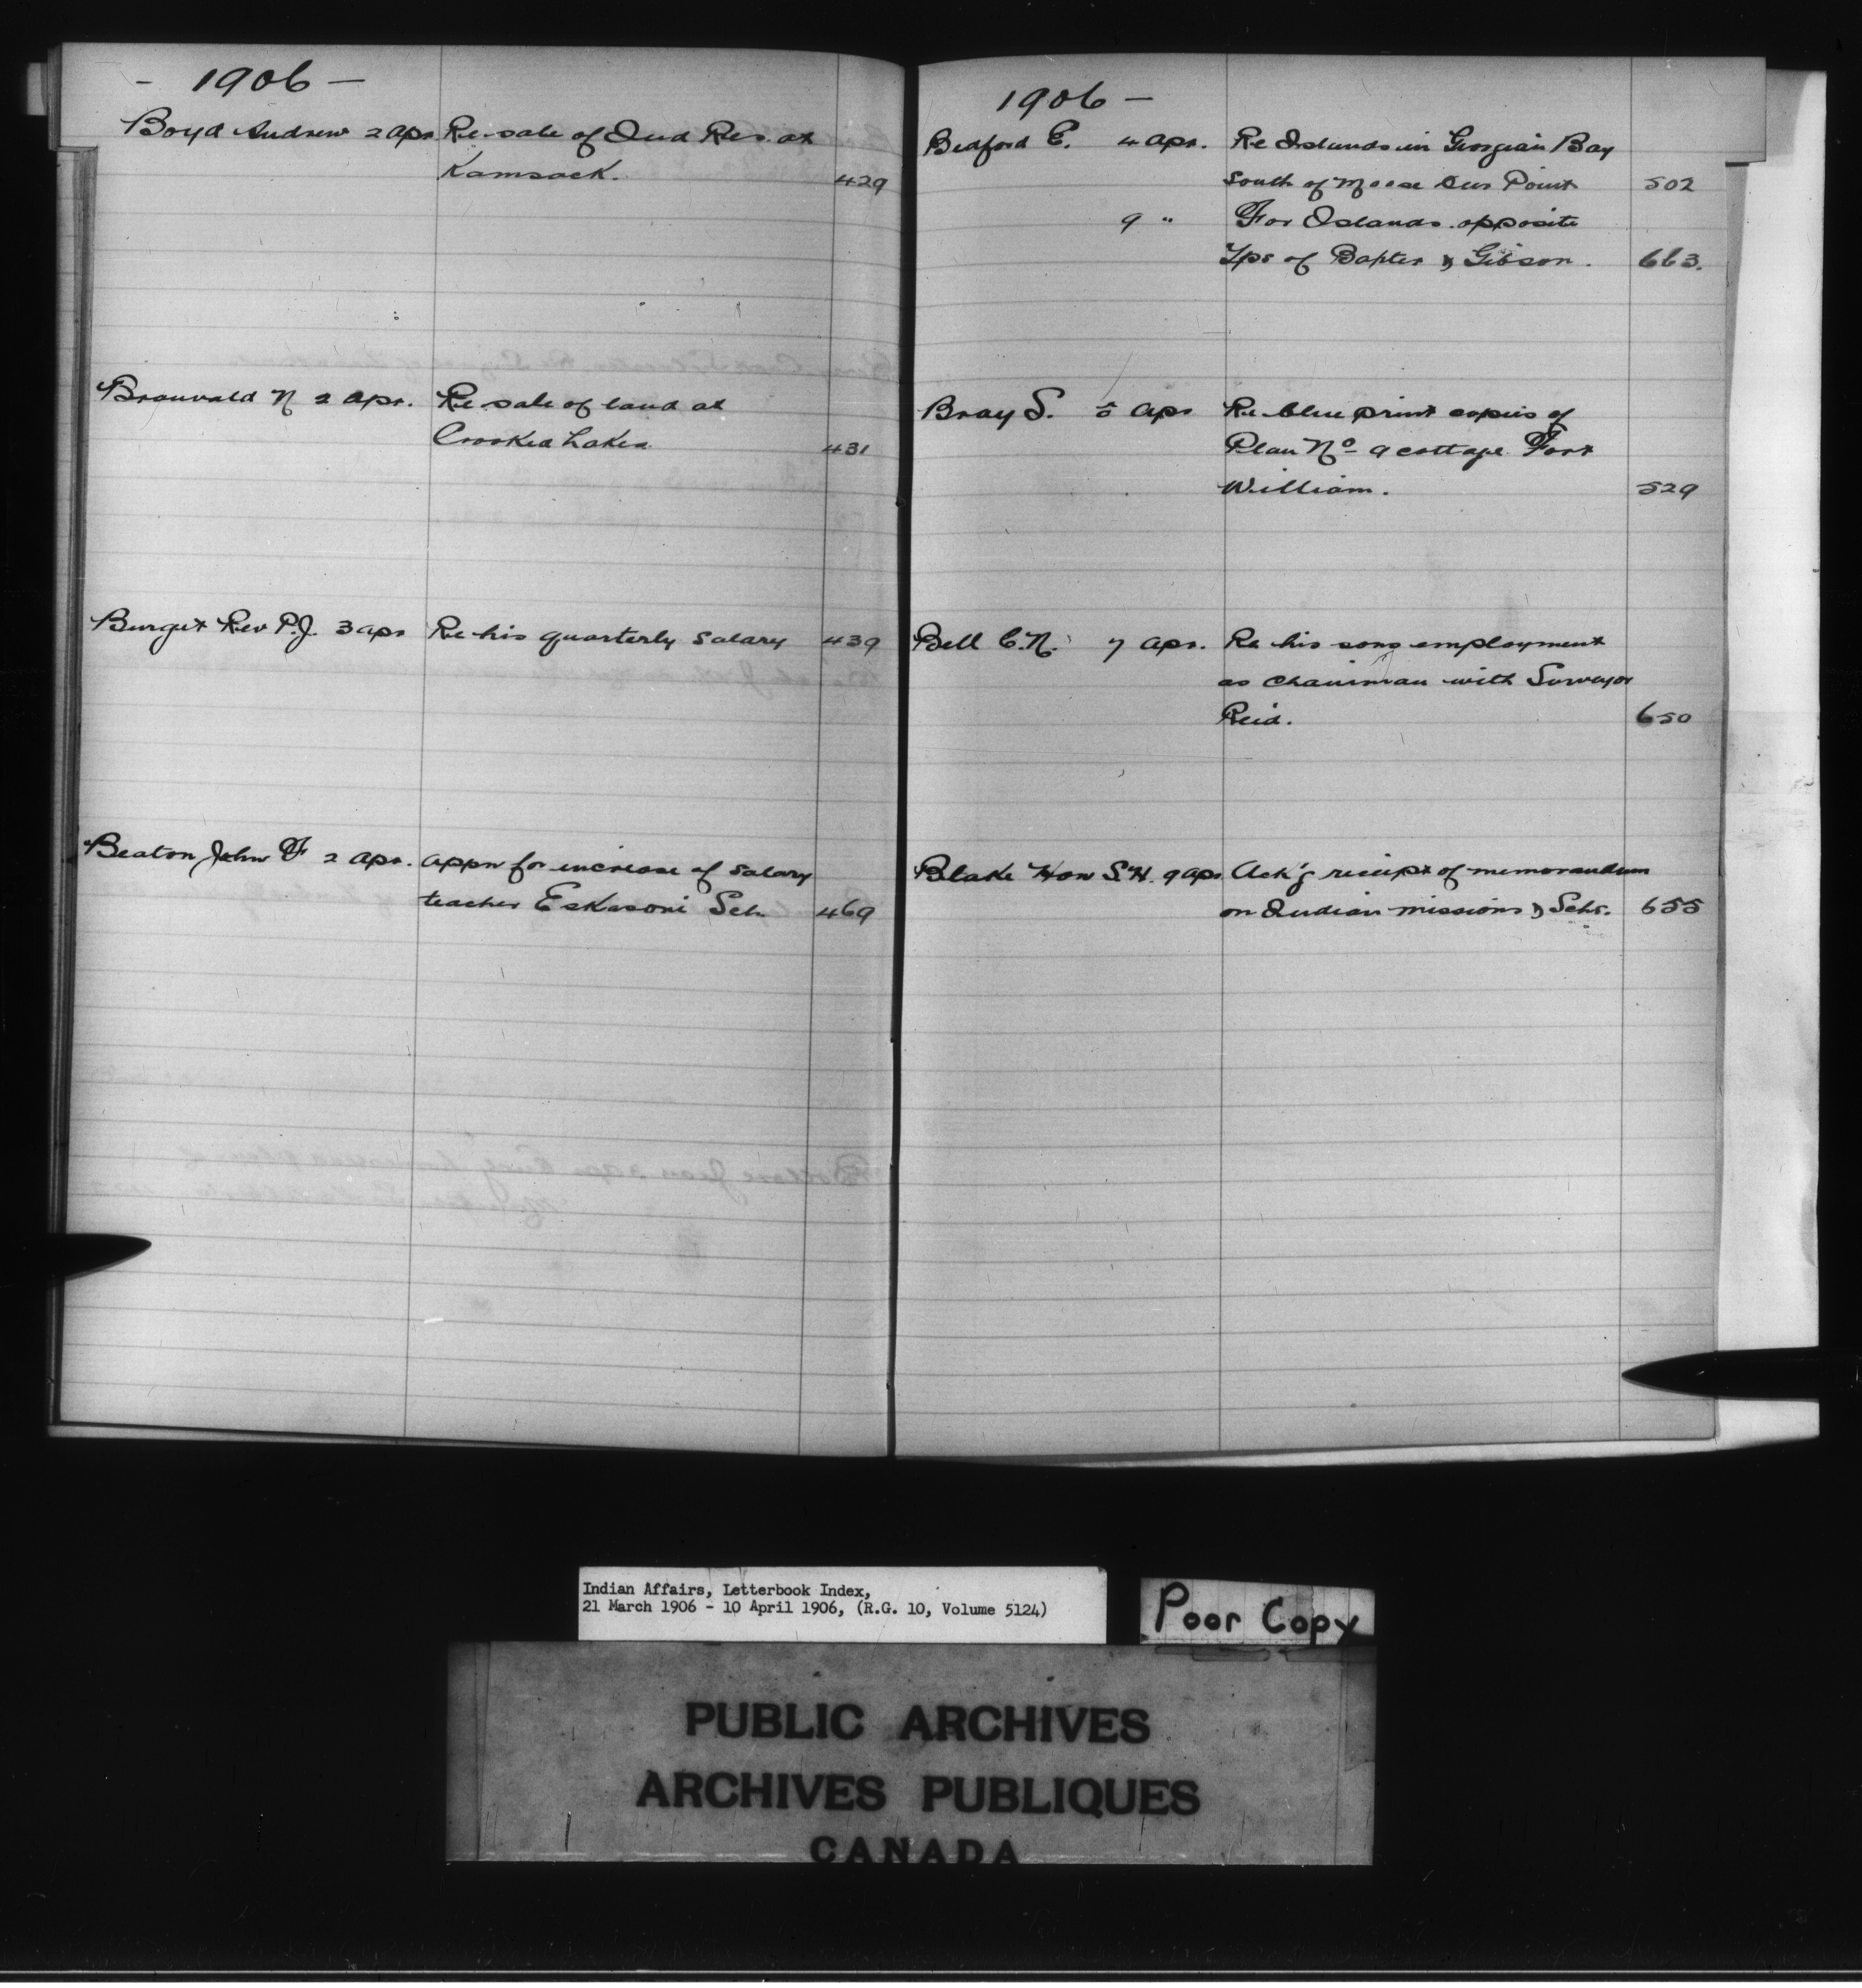 - 1906 -
Boyd Andrew 2 Apr. Re sale of Ind Res. at
Kamsack. 429
Branvold N 2 Apr. Re sale of land at
Crooked Lakes 431
Burget Rev P.J. 3 Apr Re his quarterly salary 439
Beaton John F 2 Apr. Appn for increase of salary
teacher Eskasoni Sch. 469
1906 -
Bedford E. 4 Apr. Re Islands in Georgian Bay
South of Moose Deer Point 502
9 " For Islands opposite
Tps of Baxter & Gibson. 663.
Bray S. 5 Apr Re blue print copies of
Plan No 9 cottage Fort
William. 529
Bell C.N. 7 Apr. Re his sons employment
as chainman with Surveyor
Reid. 650
Blake Hon S.H. 9 Apr Ack'g receipt of memorandum
on Indian missions & Schs. 655
Indian Affairs, Letterbook Index,
21 March 1906 - 10 April 1906, (R.G. 10, Volume 5124)
Poor Copy
PUBLIC ARCHIVES
ARCHIVES PUBLIQUES
CANADA